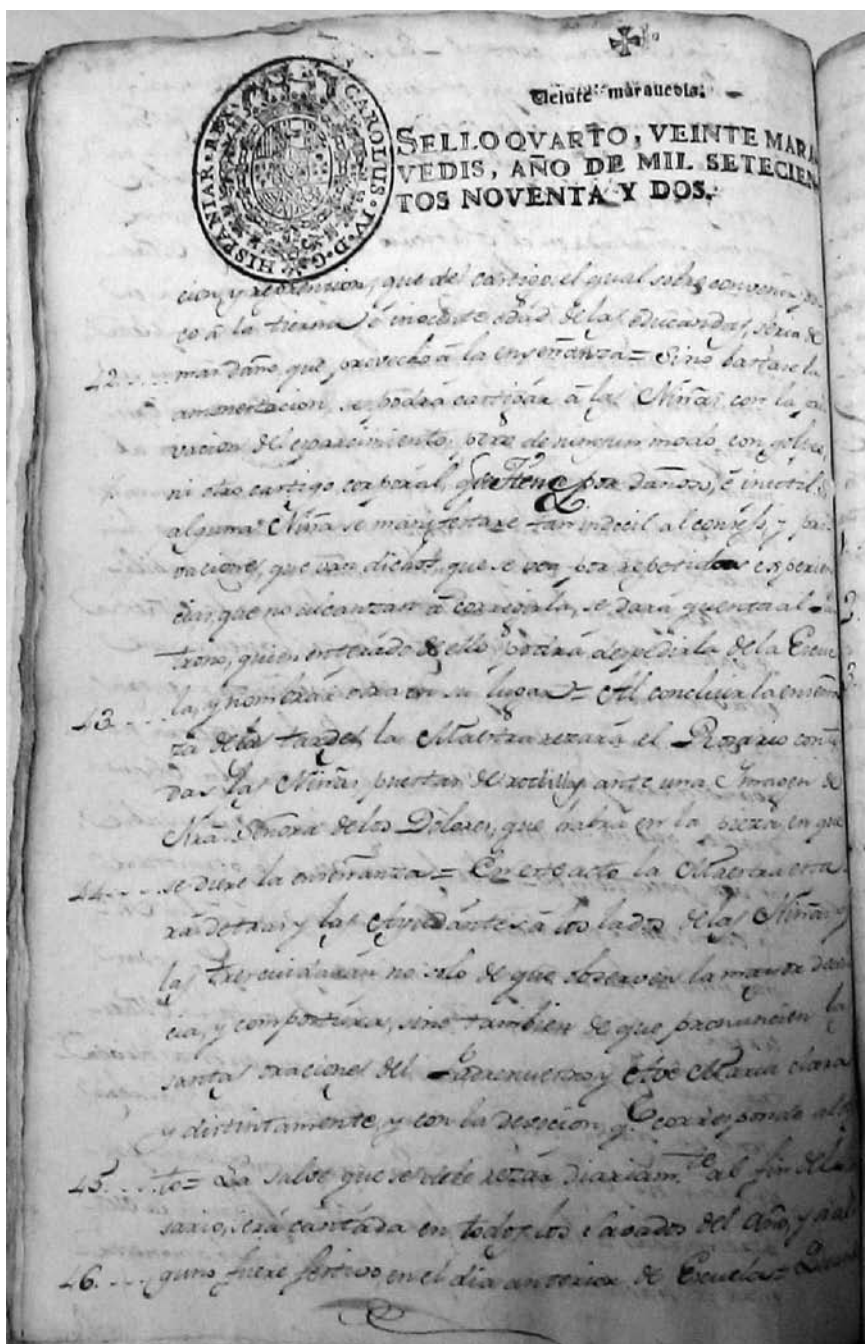 Veinte maravedis.
CAROLUS·IV·D·G·HISPANIAR·REX
SELLO QVARTO, VEINTE MARA
VEDIS, AÑO DE MIL SETECIEN
TOS NOVENTA Y DOS.
cion, y reprension, que del castigo, el qual sobre convenir po
co à la tierna è inocente edad de las educandas, seria de
42.... mas daño, que provecho à la enseñanza= Sino bastare la
amonestacion, se podrá castigar à las Niñas con la pri
vacion del esparcimiento, pero de ningun modo con golpes,
ni otro castigo corporal, que tengo por dañoso, è inutil. Si
alguna Niña se manifestare tan indocil al consejo, y pri
vaciones, que van dichas, que se vea por repetidas esperien
cias, que no alcanzan à corregirla, se dará quenta al Pa
trono, quien enterado de ello podrá despedirla de la Escue
43.... la, y nombrar otra en su lugar= Al concluir la enseñan
za de las tardes la Maestra rezará el Rosario con to
das las Niñas puestas de rodillas ante una Imagen de
Nrã Señora de los Dolores, que habrá en la pieza en que
44.... se diere la enseñanza= En este acto la Maestra esta
rá detras y las Ayudantas à los lados de las Niñas, y
las tres cuidarán no solo de que observen la mayor decen
cia, y compostura, sino tambien de que pronuncien las
santas oraciones del Padrenuestro y Ave Maria clara
y distintamente, y con la devocion, q.e corresponde al ac
45.... to= La salve que se debe rezar diariam.te al fin del Ro
sario, será cantada en todos los sabados del año, y si al
46.... guno fuere festivo, en el dia anterior de Escuela=